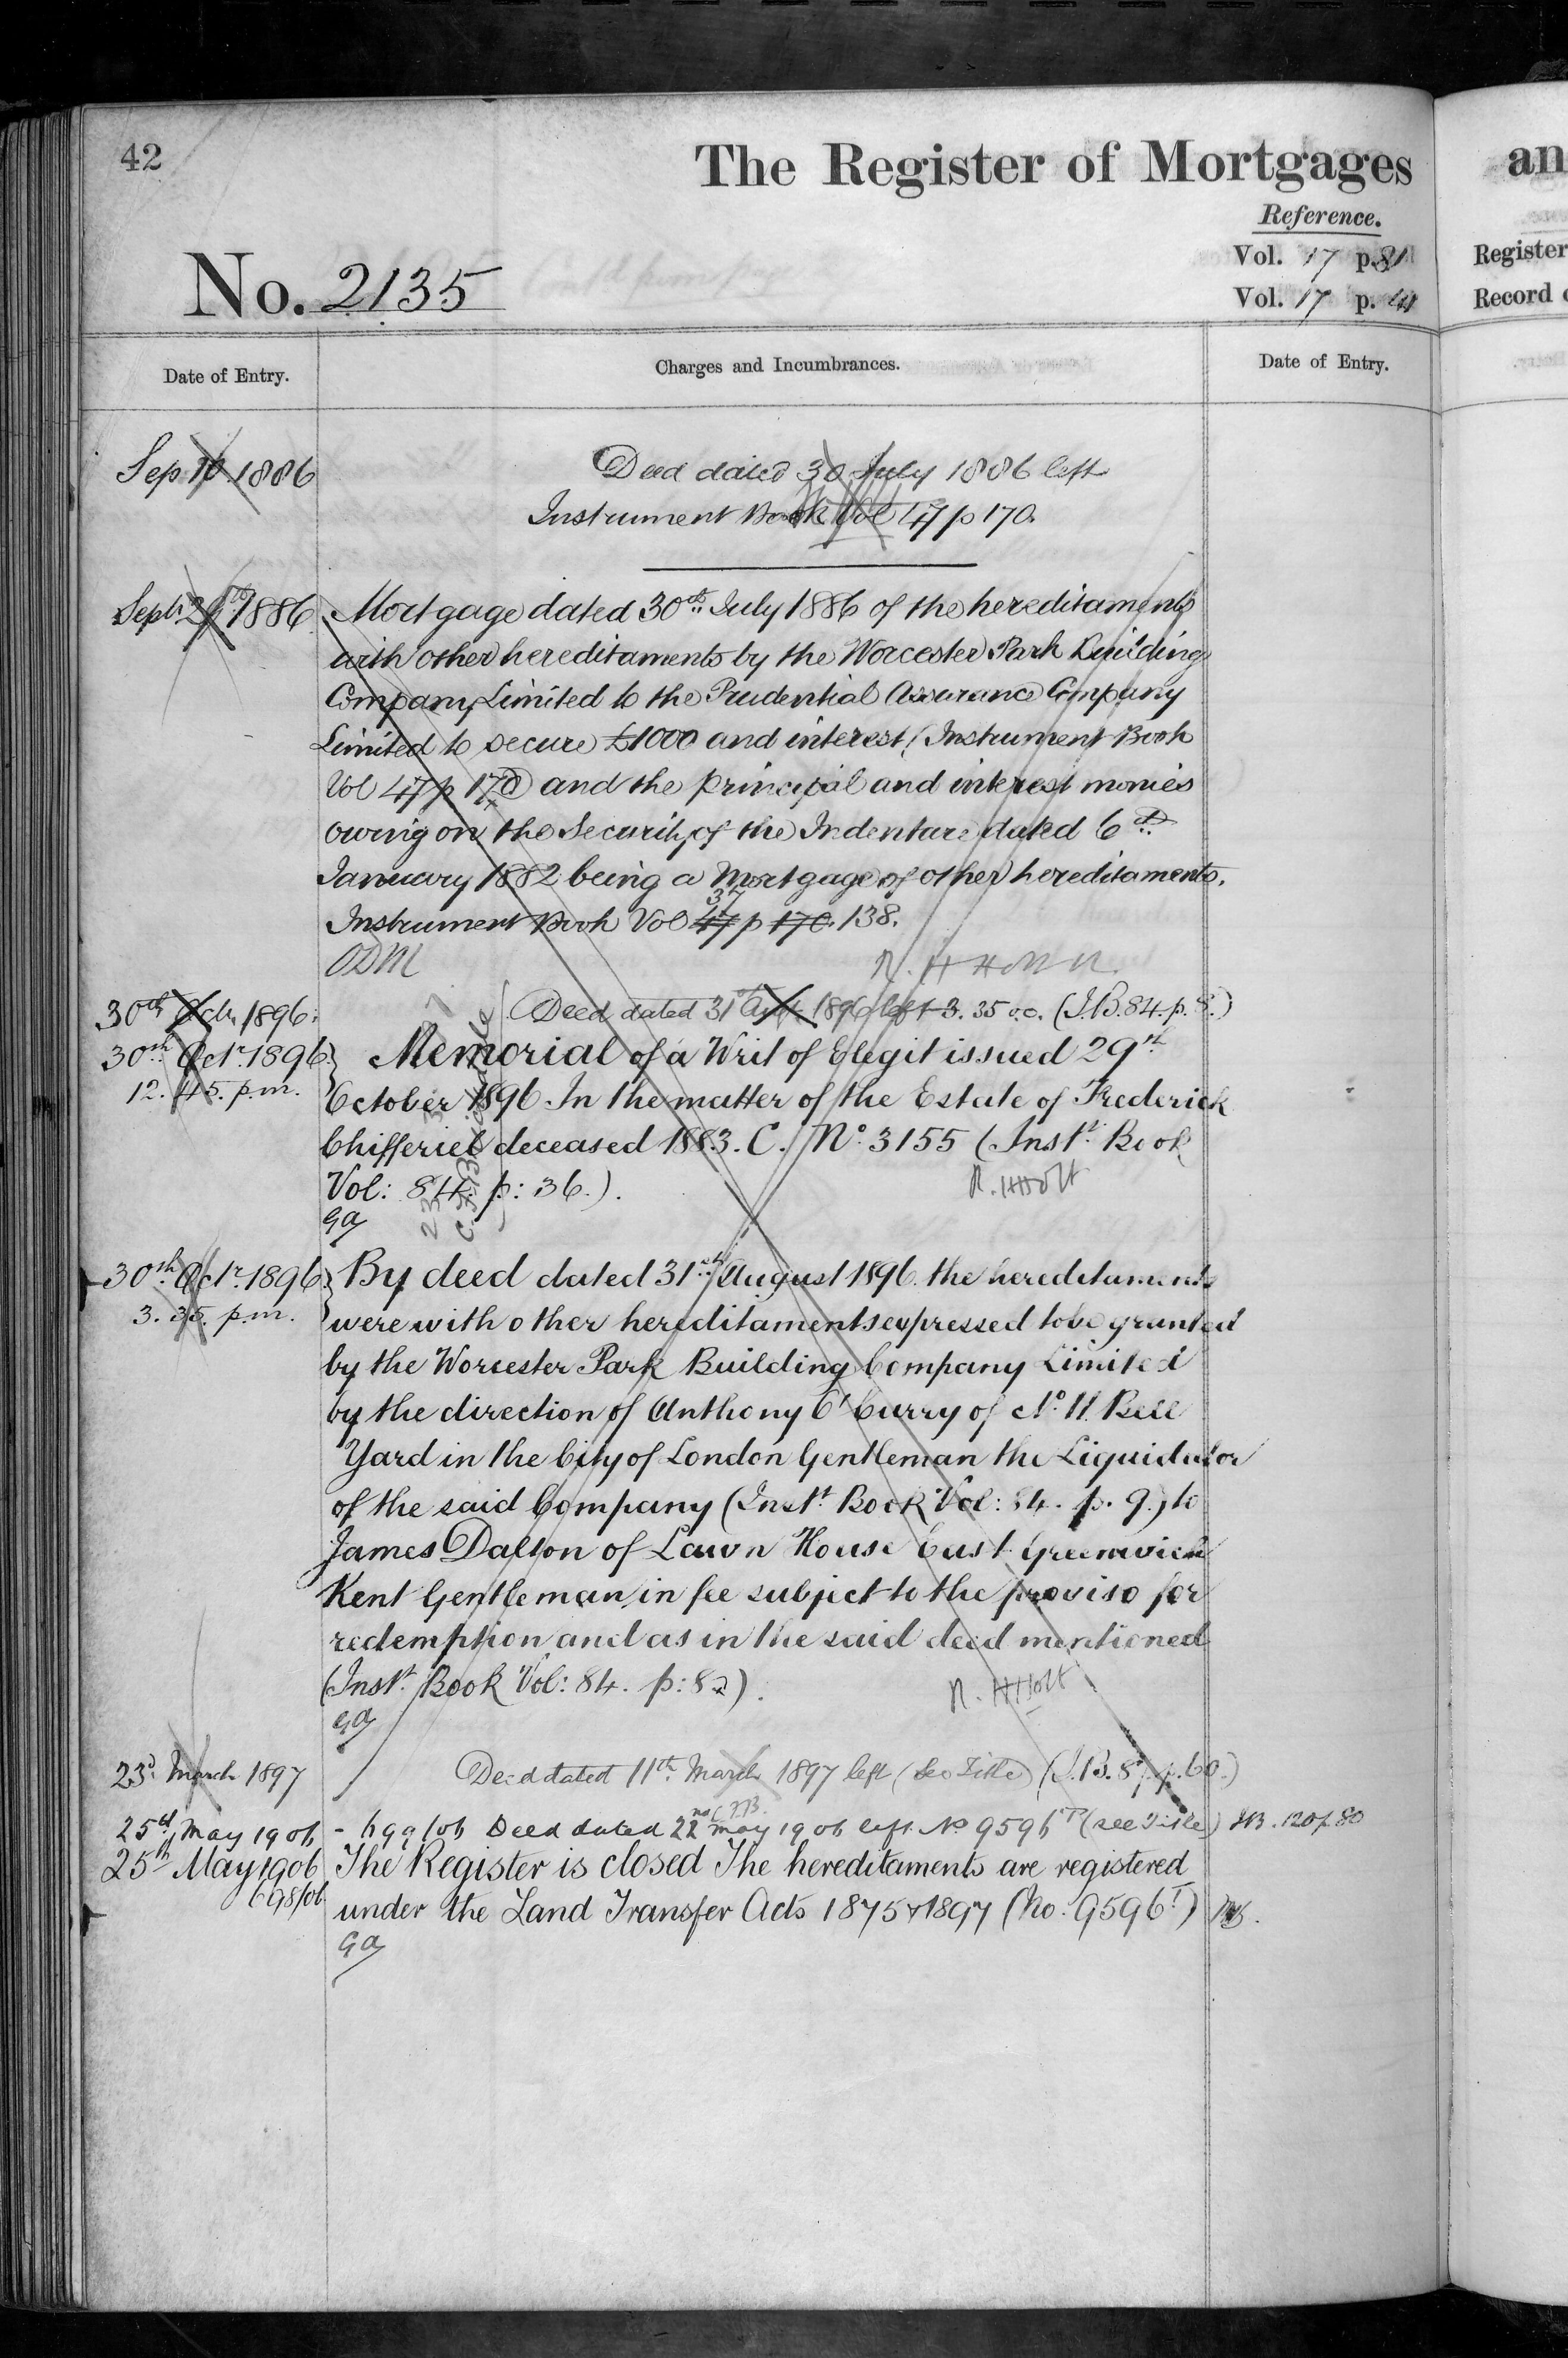 42
The Register of Mortgages
Reference.
No. 2135
Vol. 17 p. 81
Vol. 17 p. 41
Date of Entry.
Charges and Incumbrances.
Date of Entry.
Sep 10 1886
Deed dated 30 July 1886 left
Instrument Book Vol 47 p 170.
Sept. 1886
Mortgage dated 30th July 1886 of the hereditaments
with other hereditaments by the Worcester Park Building
Company Limited to the Prudential Assurance Company
Limited to secure £1000 and interest (Instrument Book
Vol 47 p 170) and the principal and interest monies
owing on the Security of the Indenture dated 6th
January 1882 being a Mortgage of other hereditaments.
Instrument Book Vol 47 37 p 170. 138.
ODM
R. H Holt
30th Octr. 1896.
Deed dated 31st Augt. 1896 left 3. 35 o.c. (I.B. 84. p. 8.)
30th Octr. 1896
12. 45. p.m.
Memorial of a Writ of Elegit issued 29th
October 1896. In the matter of the Estate of Frederick
Chifferiel deceased 1883. C. No. 3155 (Inst. Book
Vol: 84. p: 36.).
R. H Holt
GA
30th Octr. 1896
3. 35. p.m.
By deed dated 31st August 1896. the hereditaments
were with other hereditaments expressed to be granted
by the Worcester Park Building Company Limited
by the direction of Anthony C' Curry of No. 11. Bell
Yard in the City of London Gentleman the Liquidator
of the said Company (Inst. Book Vol: 84. p. 9.) to
James Dalton of Lawn House East Greenwich
Kent Gentleman in fee subject to the proviso for
redemption and as in the said deed mentioned
(Inst. Book Vol: 84. p: 82).
R. H Holt
GA
23d. March 1897
Deed dated 11th. March 1897 left (See Title) (I.B. p. 60.)
25th May 1906
- 699/06 Deed dated 22nd May 1906 left No 9596T (see Title) IB. 120 p. 80
25th May 1906
698/06
The Register is closed The hereditaments are registered
under the Land Transfer Acts 1875 & 1897 (No. 9596T)
GA
an
Register
Record